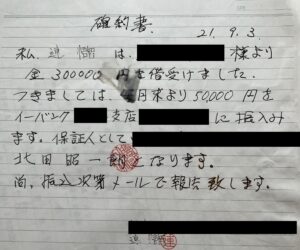 確約書
21.9.3.
私、辻 は、 様より
金 300000 円を借受けました。
つきましては、 月末より 50,000 円を
イーバンク 支店 に振込み
ます。保証人として
北田昭一朗となります。
尚、振込次第メールで報告致します。